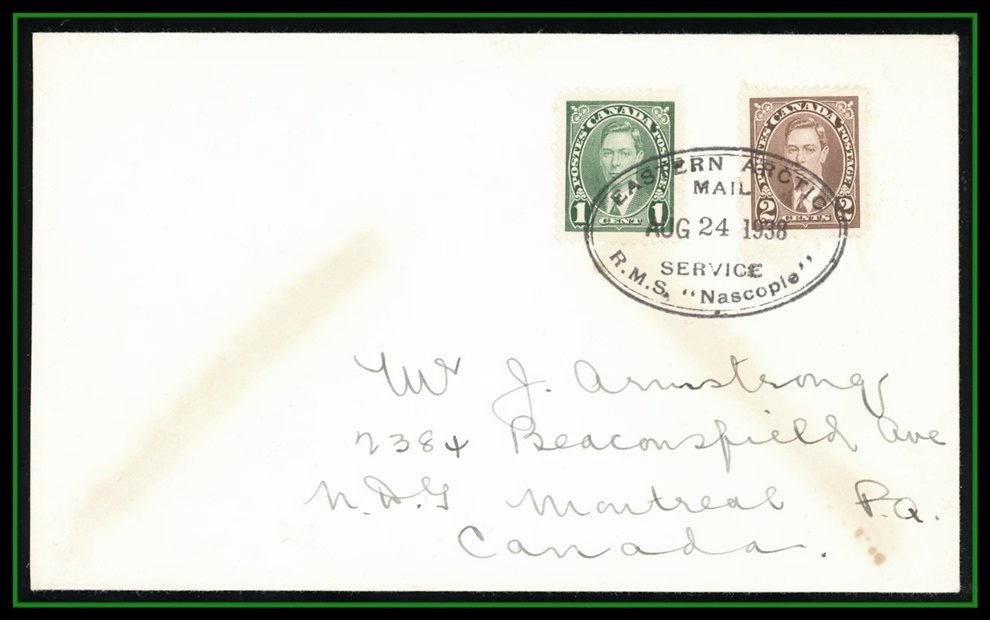 POSTES CANADA POSTAGE
1 CENT 1
POSTES CANADA POSTAGE
2 CENTS 2
EASTERN ARCTIC
MAIL
AUG 24 1938
SERVICE
R.M.S. "Nascopie"
Mr J. Armstrong
2384 Beaconsfield Ave
N.D.G Montreal P.Q.
Canada.